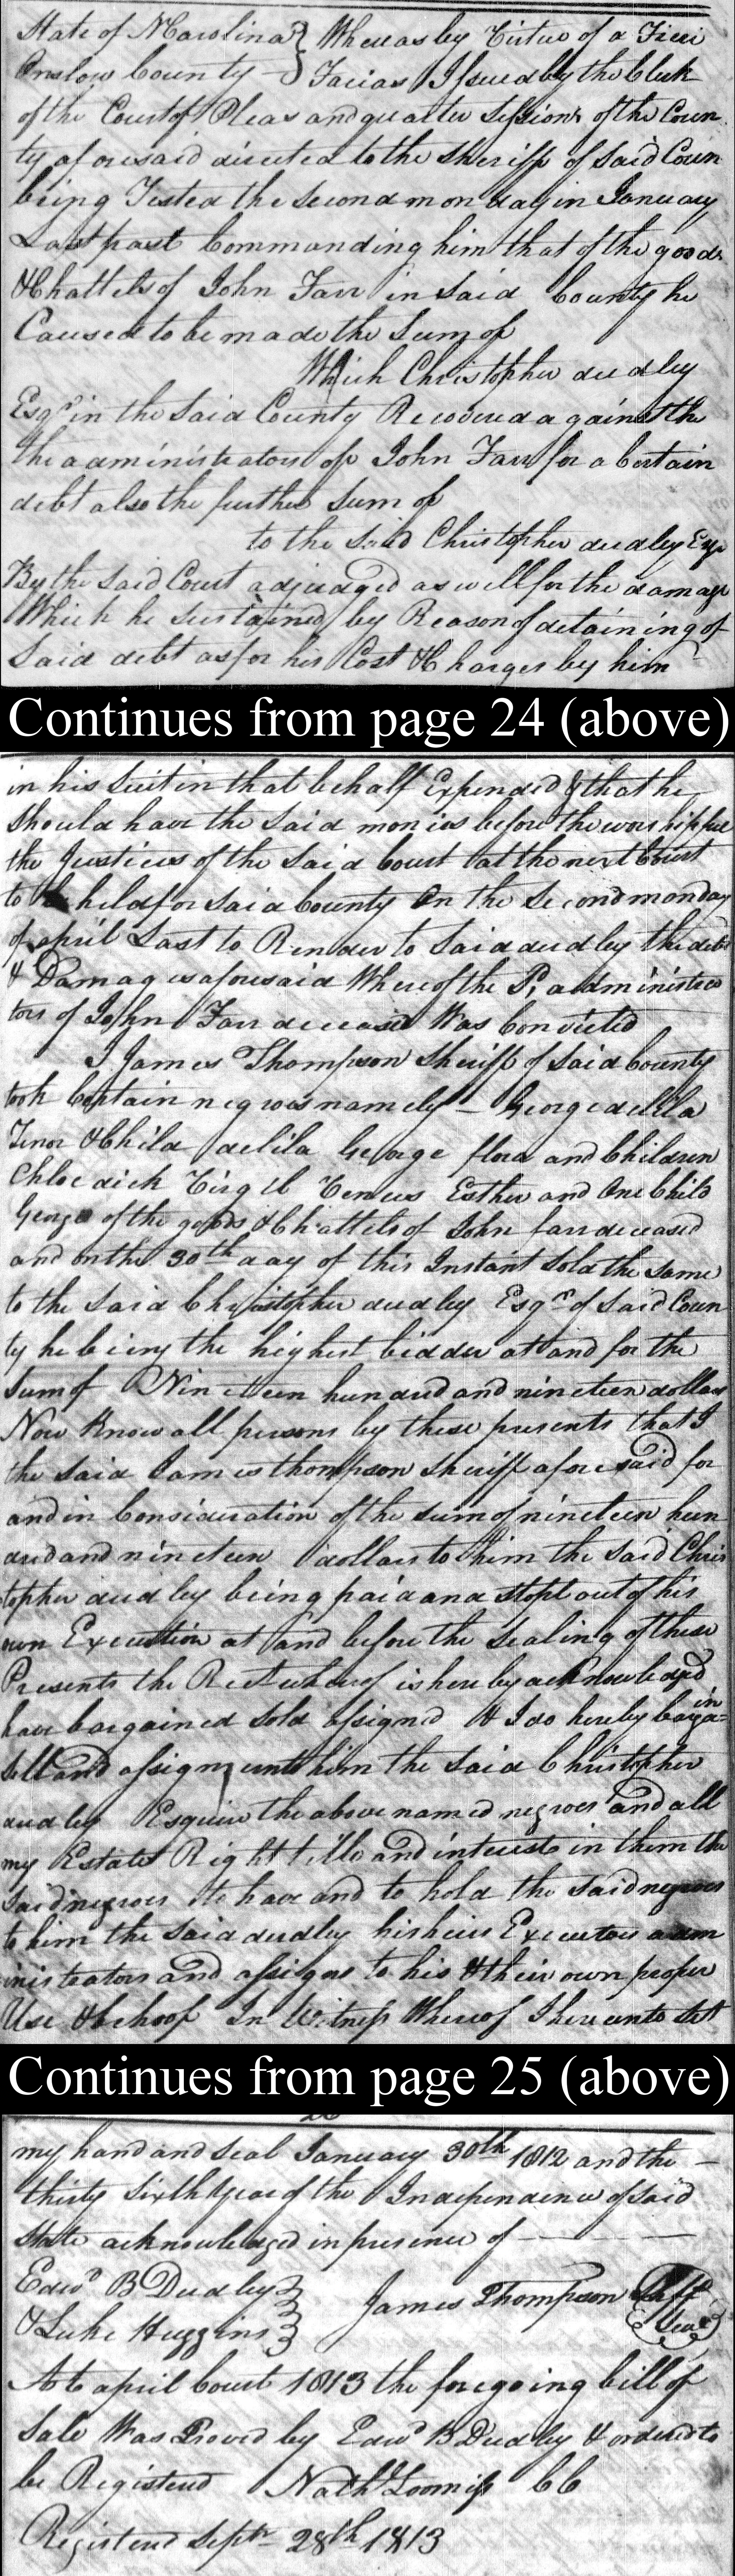 State of N Carolina } Whereas by Virtue of a Fieri
Onslow County } Facias Issued by the Clerk
of the Court of Pleas and quarter Sessions of the Coun
ty aforesaid directed to the Sheriff of Said Coun
being Tested the Second monday in January
Last past Commanding him that of the goods
& Chattels of John Farr in Said County he
Caused to be made the Sum of
Which Christopher dudley
Esqr in the Said County Recovered against the
the administrators of John Farr for a Certain
debt also the further Sum of
to the Said Christopher dudley Esqr
By the Said Court adjudged as well for the damage
Which he Sustained by Reason of detaining of
Said debt as for his Cost & Charges by him
Continues from page 24 (above)
in his Suit in that behalf Expended & that he
Should have the Said monies before the worshipful
the Justices of the Said Court at the next Court
to be held for Said County On the Second monday
of april Last to Render to Said dudley the debt
& Damages aforesaid Whereof the administra
tors of John Farr deceased Was Convicted
I James Thompson Sheriff of Said County
took Certain negroes namely - George delila
Tenor & Child delila George flora and Children
Chloe dick Virgil Venus Esther and One Child
George of the goods & Chattels of John farr deceased
and on the 30th day of this Instant Sold the Same
to the Said Christopher dudley Esqr of Said Coun
ty he being the highest bidder at and for the
Sum of Nineteen hundred and nineteen dollars
Now Know all persons by these presents that I
the Said James thompson Sheriff aforesaid for
and in Consideration of the Sum of nineteen hun
dred and nineteen dollars to him the Said Chris
topher dudley being paid and Stopt out of his
own Execution at and before the Sealing of these
Presents the Receit whereof is hereby acknowledged
have bargained Sold assigned & I do hereby bargain
Sell and assign unto him the Said Christopher
dudley Esquire the above named negroes and all
my Estate Right title and interest in them the
Said negroes to have and to hold the Said negroes
to him the Said dudley his heirs Executors adm
inistrators and assigns to his & their own proper
Use & behoof In Witness Whereof I hereunto Set
Continues from page 25 (above)
my hand and Seal January 30th 1812 and the -
thirty Sixth Year of the Independence of Said
State acknowledged in presence of
Edwd B Dudley } James Thompson Shff
& Luke Huggins } Seal
At april Court 1813 the foregoing bill of
Sale Was Proved by Edwd B Dudley & ordered to
be Registered Nathl Loomiss CC
Registered Septr 28th 1813